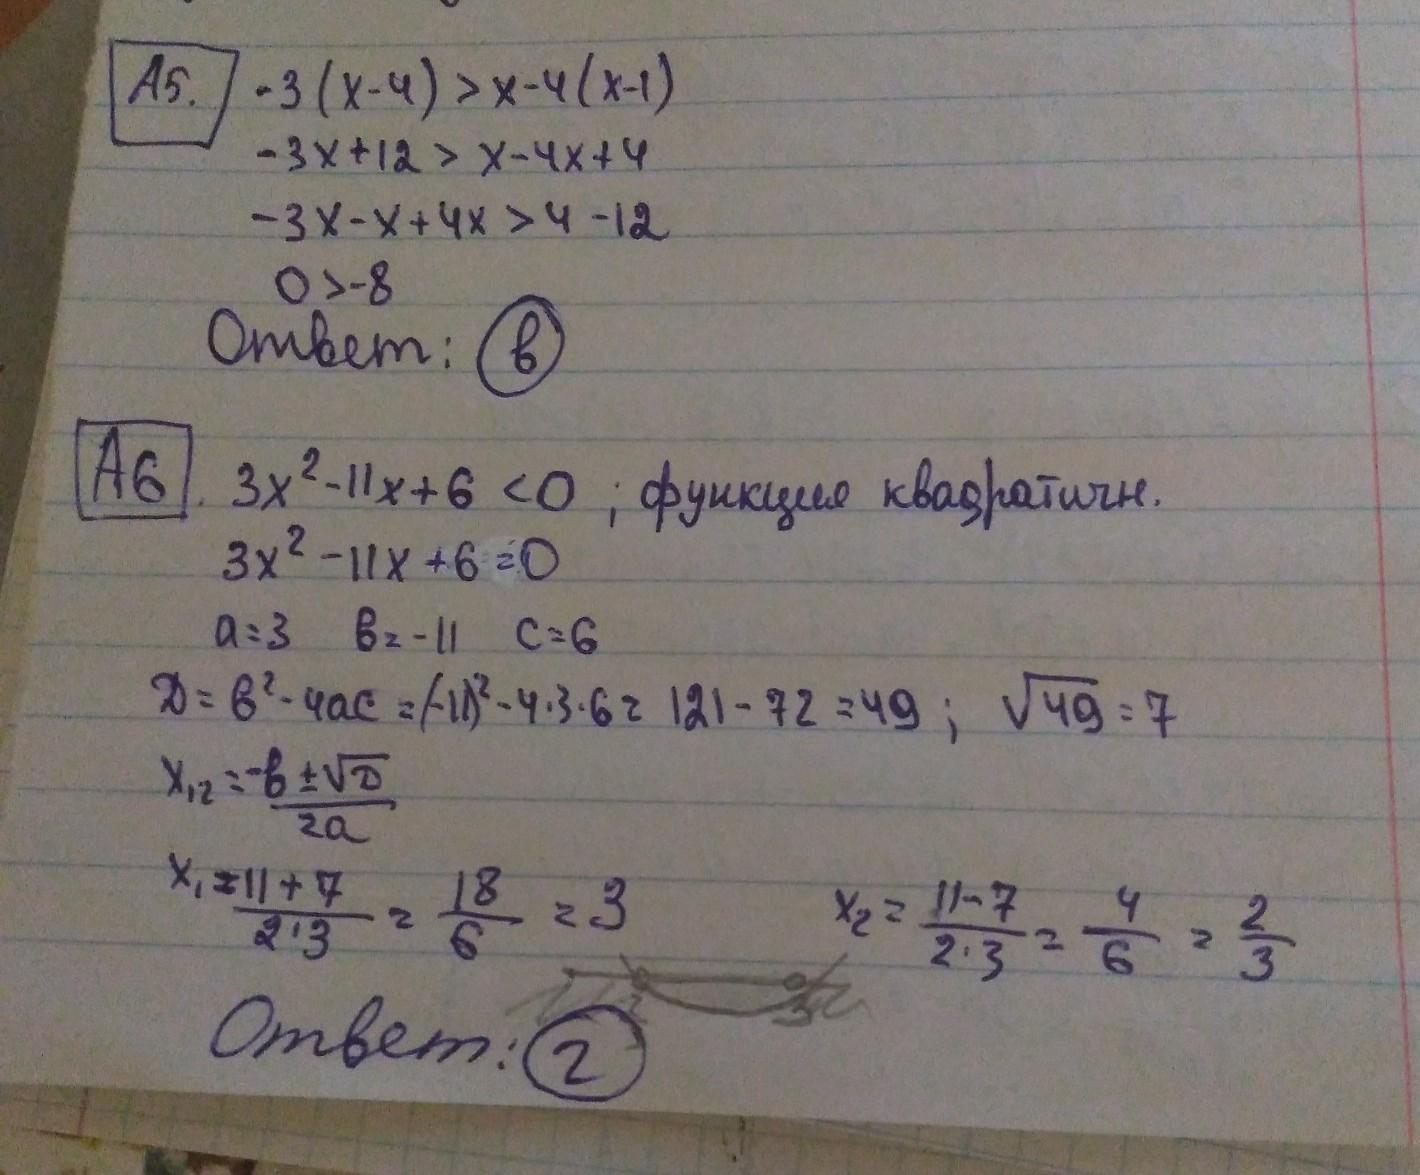 А5. -3(x-4)>x-4(x-1)
-3x+12>x-4x+4
-3x-x+4x>4-12
0>-8
Ответ: в
А6. 3x²-11x+6<0 ; функция квадратичн.
3x²-11x+6=0
a=3 в=-11 c=6
D=в²-4ac=(-11)²-4·3·6=121-72=49; √49=7
x₁,₂=-в±√D/2a
x₁=11+7/2·3=18/6=3 x₂=11-7/2·3=4/6=2/3
3
Ответ: г